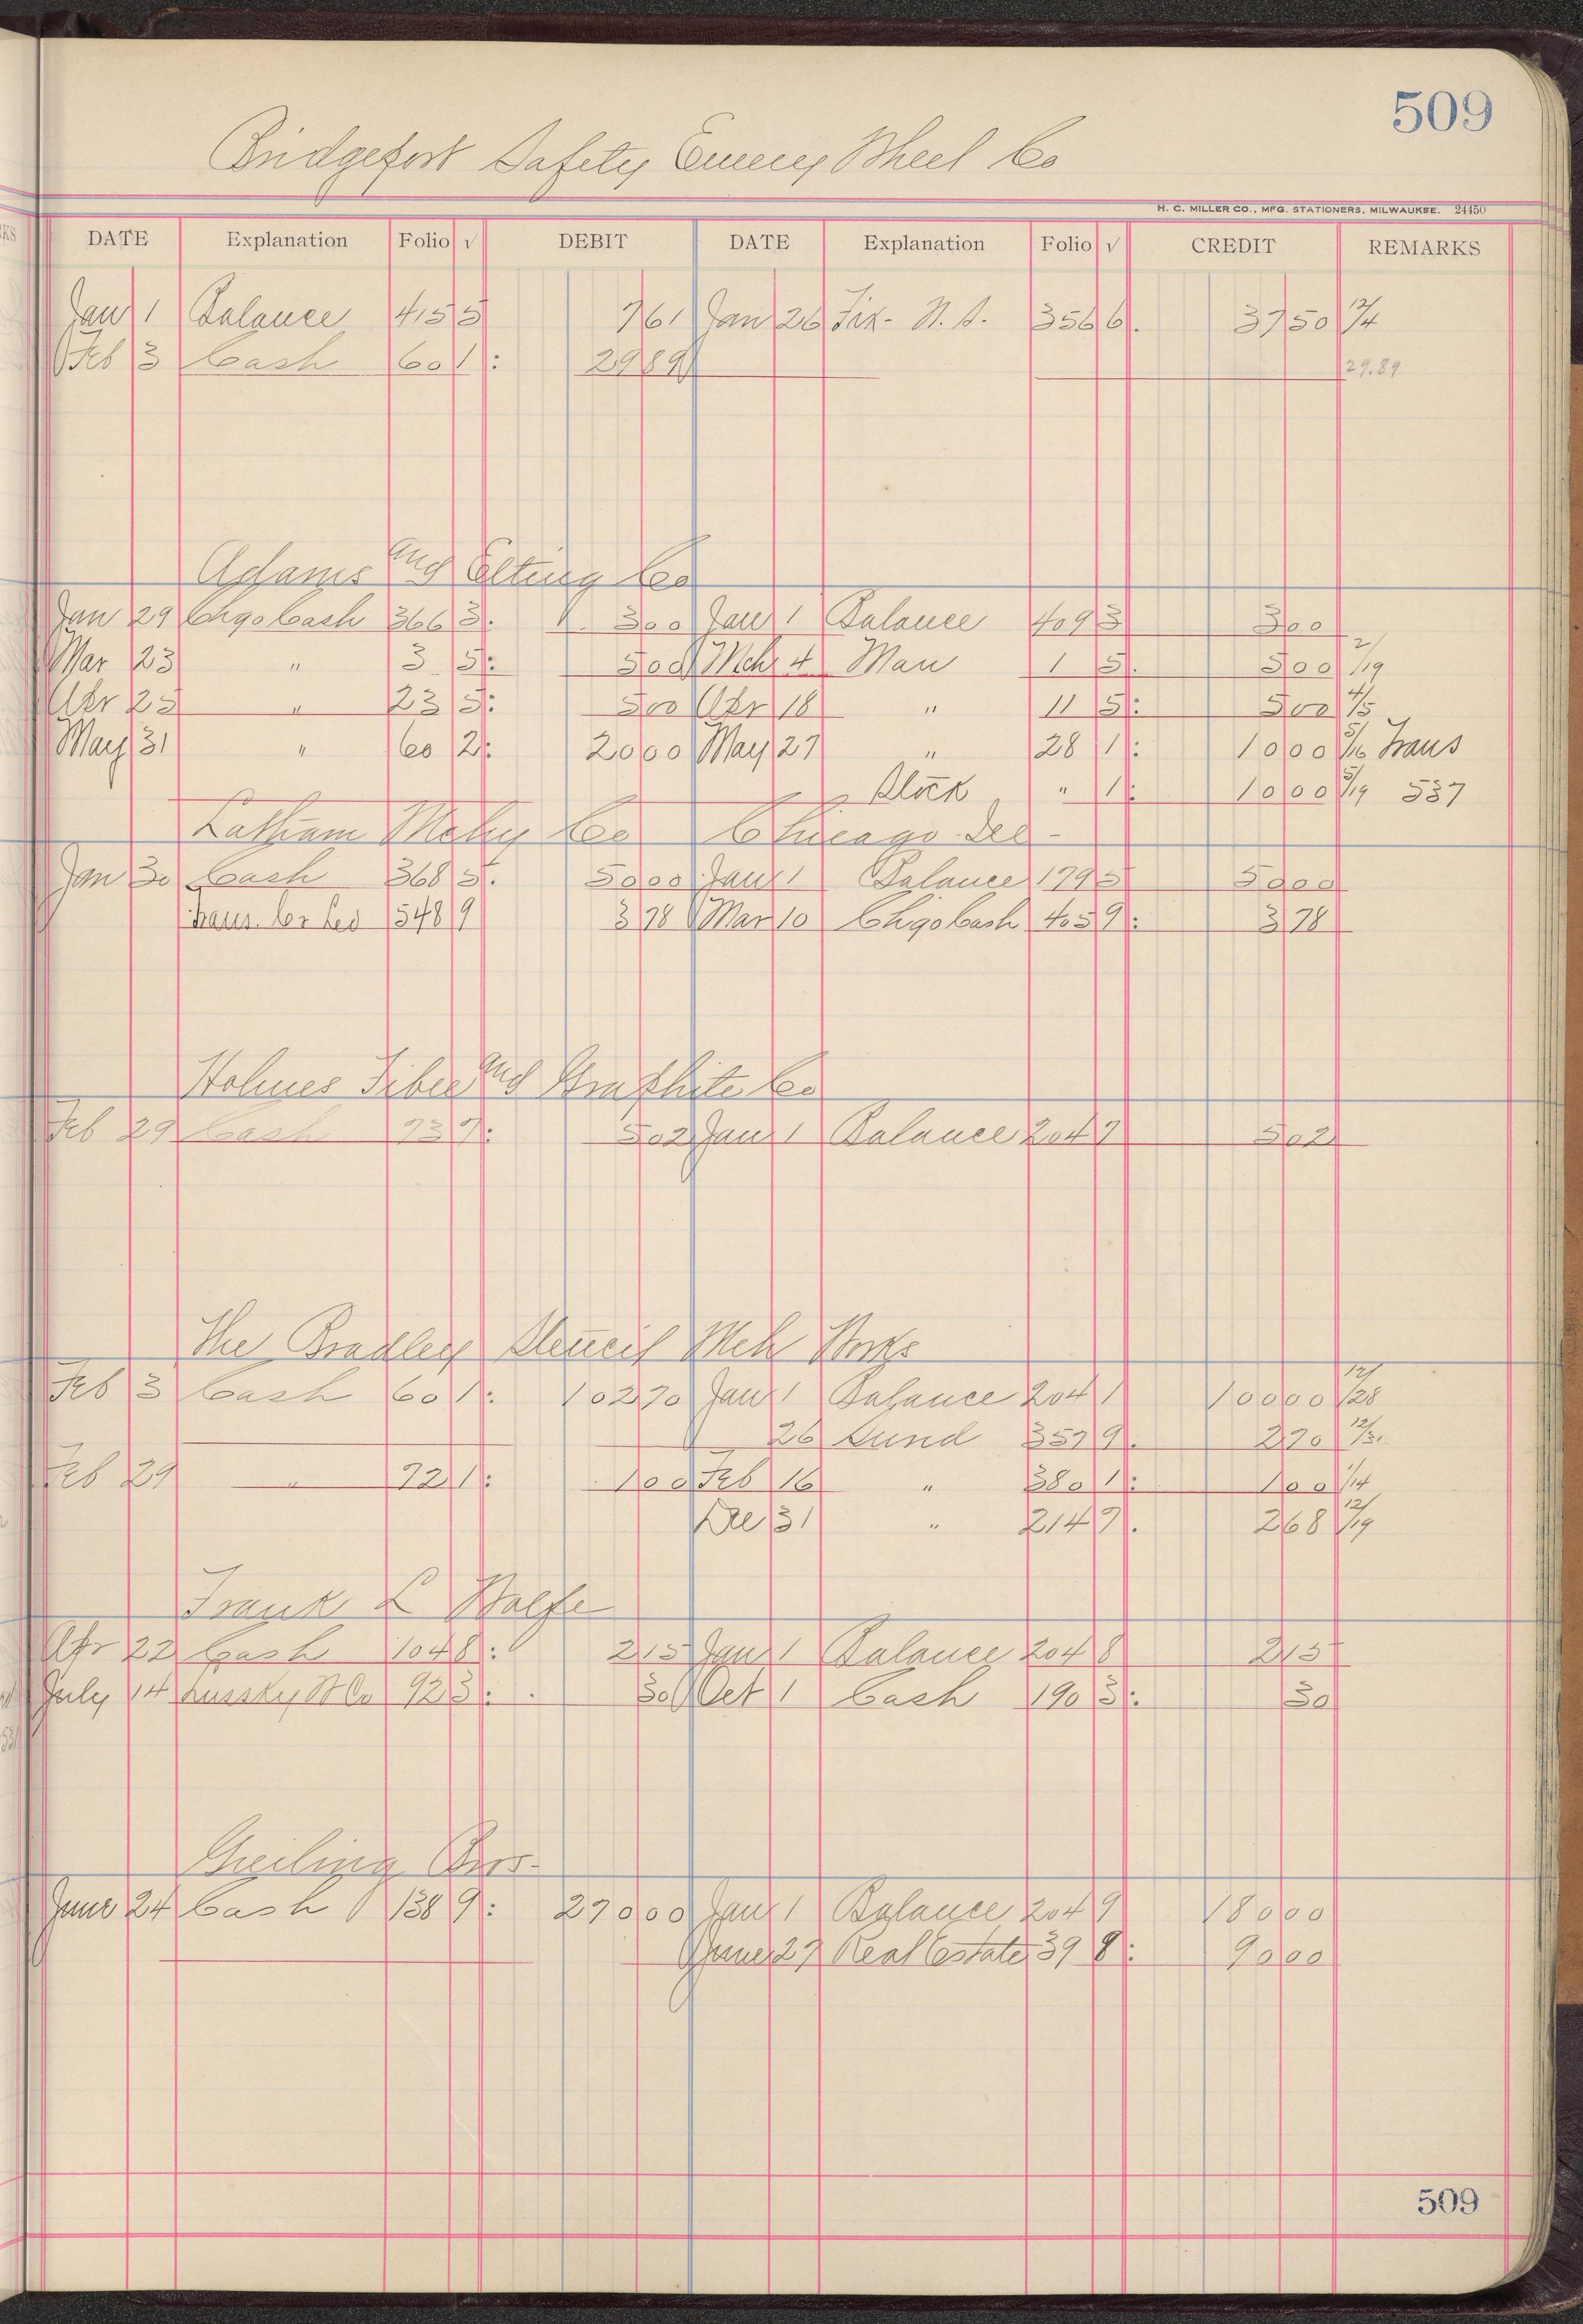 509
Bridgeport Safety Emery Wheel Co
H. C. MILLER CO., MFG. STATIONERS, MILWAUKEE. 24450
DATE Explanation Folio √ DEBIT DATE Explanation Folio √ CREDIT REMARKS
Jan 1 Balance 415 5 7 61 Jan 26 Fix - N. A. 356 6. 37 50 12/4
Feb 3 Cash 60 1: 29 89 29.89
Adams and Elting Co
Jan 29 Chgo Cash 366 3. 3 00 Jan 1 Balance 409 3 3 00
Mar 23 " 3 5: 5 00 Mch 4 Man 1 5. 5 00 2/19
Apr 25 " 23 5: 5 00 Apr 18 " 11 5: 5 00 4/5
May 31 " 60 2: 20 00 May 27 " 28 1: 10 00 5/16 Trans
Block " 1: 10 00 5/19 537
Latham Mchy Co Chicago Ill -
Jan 30 Cash 368 5. 50 00 Jan 1 Balance 179 5 50 00
Trans. Cr Led 548 9 3 78 Mar 10 Chgo Cash 405 9: 3 78
Holmes Fibre and Graphite Co
Feb 29 Cash 73 7: 5 02 Jan 1 Balance 204 7 5 02
The Bradley Stencil Mch Works
Feb 3 Cash 60 1: 102 70 Jan 1 Balance 204 1 100 00 12/28
26 Sund 357 9. 2 70 12/31
Feb 29 " 72 1: 1 00 Feb 16 " 380 1: 1 00 1/14
Dec 31 " 214 7. 2 68 12/19
Frank L Wolfe
Apr 22 Cash 104 8: 2 15 Jan 1 Balance 204 8 2 15
July 14 Lussky W Co 92 3: 30 Oct 1 Cash 190 3: 30
Greiling Bros-
June 24 Cash 138 9: 270 00 Jan 1 Balance 204 9 180 00
June 27 Real Estate 39 8: 90 00
509